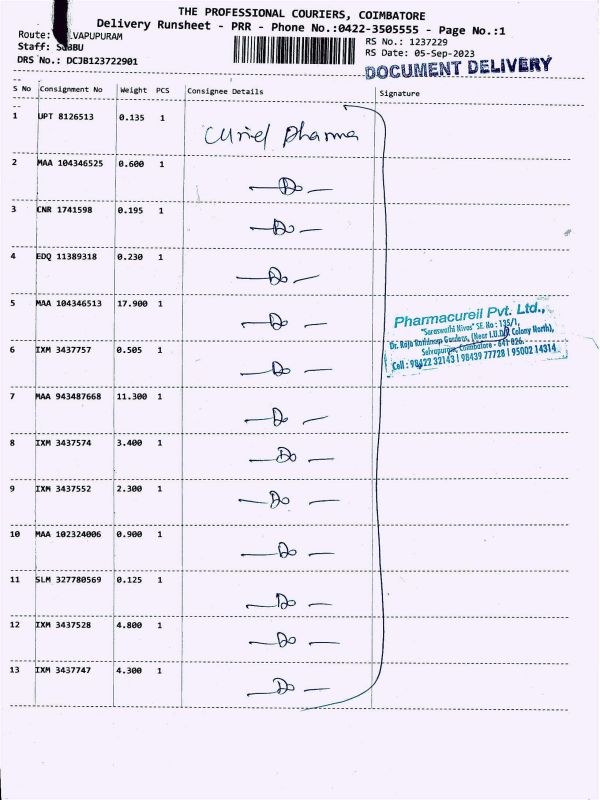 THE PROFESSIONAL COURIERS, COIMBATORE
Delivery Runsheet - PRR - Phone No.:0422-3505555 - Page No.:1
Route: VAPUPURAM
RS No.: 1237229
Staff: SUBBU
RS Date: 05-Sep-2023
DRS No.: DCJB123722901
DOCUMENT DELIVERY
S No Consignment No Weight PCS Consignee Details Signature
1 UPT 8126513 0.135 1
Curiel Pharma
2 MAA 104346525 0.600 1 — Do —
3 CNR 1741598 0.195 1 — Do —
4 EDQ 11389318 0.230 1 — Do —
5 MAA 104346513 17.900 1 — Do —
6 IXM 3437757 0.505 1 — Do —
7 MAA 943487668 11.300 1 — Do —
8 IXM 3437574 3.400 1 — Do —
9 IXM 3437552 2.300 1 — Do —
10 MAA 102324006 0.900 1 — Do —
11 SLM 327780569 0.125 1 — Do —
12 IXM 3437528 4.800 1 — Do —
13 IXM 3437747 4.300 1 — Do —
Pharmacureil Pvt. Ltd.,
"Saraswathi Nivas" SF. No : 135/1,
Dr. Raja Rathinap Gardens, (Near I.U.D.P. Colony North),
Selvapuram, Coimbatore - 641 026.
Cell : 98422 32143 | 98439 77728 | 95002 14314